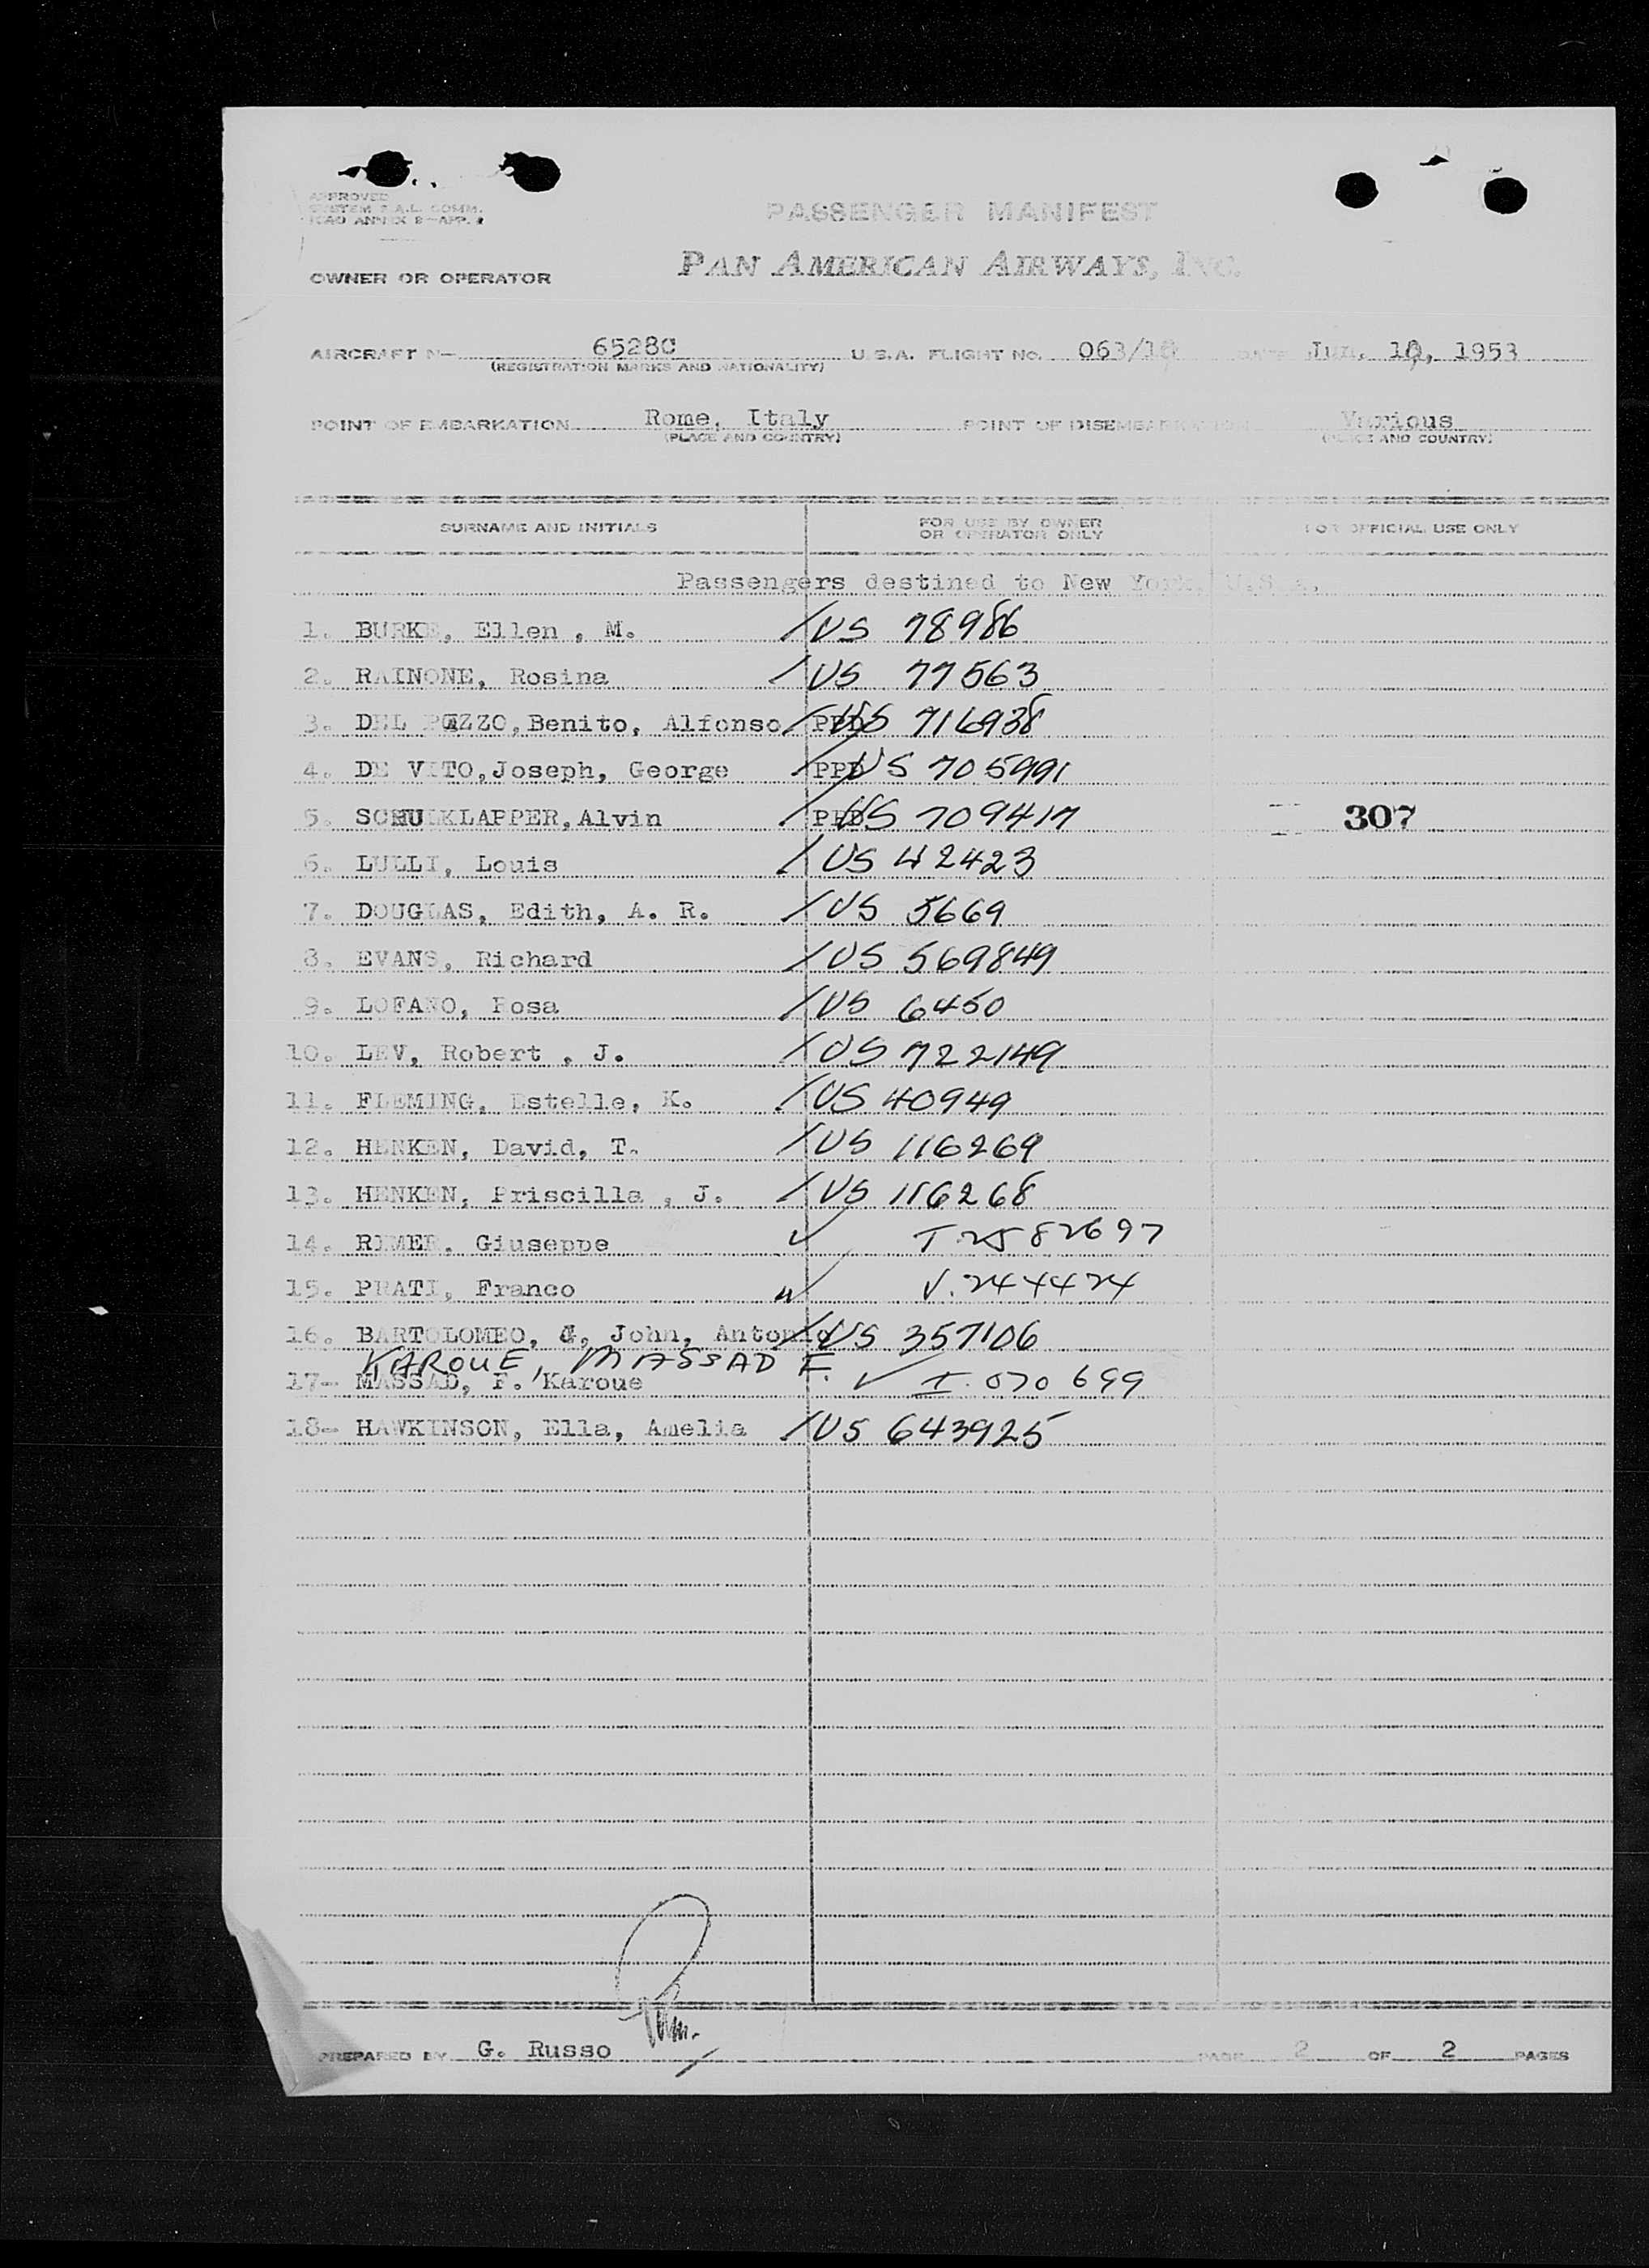 APPROVED
SYSTEM F.A.L. COMM.
ICAO ANNEX 9—APP.
PASSENGER MANIFEST
OWNER OR OPERATOR PAN AMERICAN AIRWAYS, INC.
AIRCRAFT N— 6528C U.S.A. FLIGHT NO. 063/10 DATE Jun, 10, 1953
(REGISTRATION MARKS AND NATIONALITY)
POINT OF EMBARKATION Rome, Italy POINT OF DISEMBARKATION Various
(PLACE AND COUNTRY) (PLACE AND COUNTRY)
SURNAME AND INITIALS FOR USE BY OWNER OR OPERATOR ONLY FOR OFFICIAL USE ONLY
Passengers destined to New York, U.S.A.
1. BURKE, Ellen , M. /US 78986
2. RAINONE, Rosina /US 77563
3. DEL POZZO, Benito, Alfonso / PPD US 716938
4. DE VITO, Joseph, George / PPD US 705991
5. SCHULKLAPPER, Alvin / PPD US 709417 307
6. LULLI, Louis /US 42423
7. DOUGLAS, Edith, A. R. /US 5669
8. EVANS, Richard /US 569849
9. LOFANO, Rosa /US 6450
10. LEV, Robert , J. /US 722149
11. FLEMING, Estelle, K. /US 40949
12. HENKEN, David, T. /US 116269
13. HENKEN, Priscilla , J. /US 116268
14. RIMER, Giuseppe ✓ I.2582697
15. PRATI, Franco ✓ V.244424
16. BARTOLOMEO, John, Antonio /US 357106
KAROUE, MASSAD F.
17- MASSAD, F. Karoue ✓ I.070699
18- HAWKINSON, Ella, Amelia /US 643925
PREPARED BY G. Russo PAGE 2 OF 2 PAGES